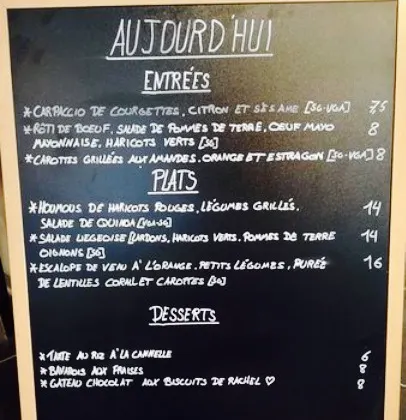 AUJOURD'HUI
ENTRÉES
*CARPACCIO DE COURGETTES, CITRON ET SÉSAME [SG-VGA] 7,5
*RÔTI DE BOEUF, SALADE DE POMMES DE TERRE, OEUF MAYO 8
MAYONNAISE, HARICOTS VERTS [SG]
*CAROTTES GRILLÉES AUX AMANDES, ORANGE ET ESTRAGON [SG-VGA] 8
PLATS
*HOUMOUS DE HARICOTS ROUGES, LÉGUMES GRILLÉS, 14
SALADE DE QUINOA [VGA-SG]
*SALADE LIEGEOISE [LARDONS, HARICOTS VERTS, POMMES DE TERRE 14
OIGNONS [SG]
*ESCALOPE DE VEAU À L'ORANGE, PETITS LÉGUMES, PURÉE 16
DE LENTILLES CORAIL ET CAROTTES [SG]
DESSERTS
*TARTE AU RIZ À LA CANNELLE 6
*BAVAROIS AUX FRAISES 8
*GATEAU CHOCOLAT AUX BISCUITS DE RACHEL ♡ 8